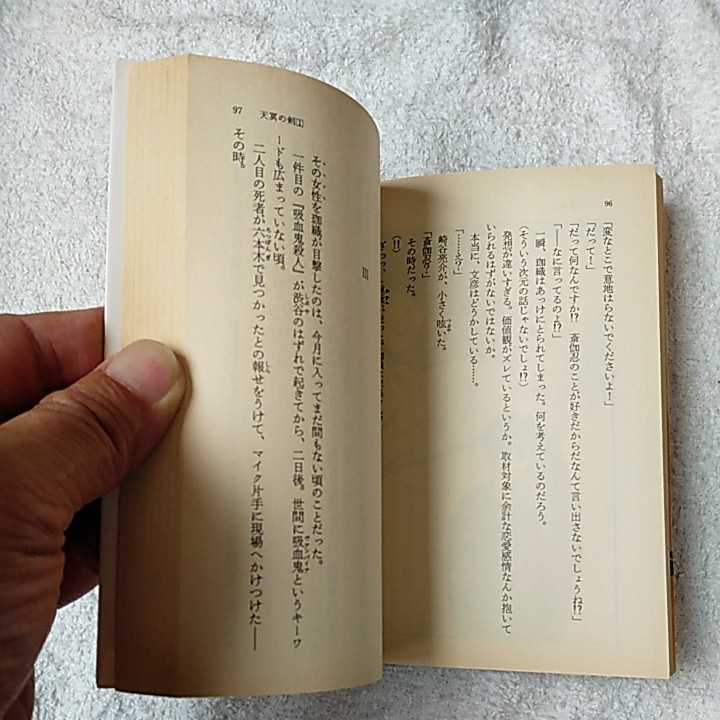 96
「変なとこで意地はらないでくださいよ！」
「だって！」
「だって何なんですか!? 斎伽忍のことが好きだからだなんて言い出さないでしょうね!?」
「――なに言ってるのよ!?」
一瞬、珈織はあっけにとられてしまった。何を考えているのだろう。
（そういう次元の話じゃないでしょ!?）
発想が違いすぎる。価値観がズレているというか。取材対象に余計な恋愛感情なんか抱いて
いられるはずがないではないか。
本当に、文彦はどうかしている……。
「……え？」
崎谷亮介が、小さく呟いた。
「斎伽忍？」
その時だった。
（!!）
97 天冥の剣[1]
III
その女性を珈織が目撃したのは、今月に入ってまだ間もない頃のことだった。
一件目の『吸血鬼殺人』が渋谷のはずれで起きてから、二日後。世間に吸血鬼というキーワ
ードも広まっていない頃。
二人目の死者が六本木で見つかったとの報せをうけて、マイク片手に現場へかけつけた――
その時。